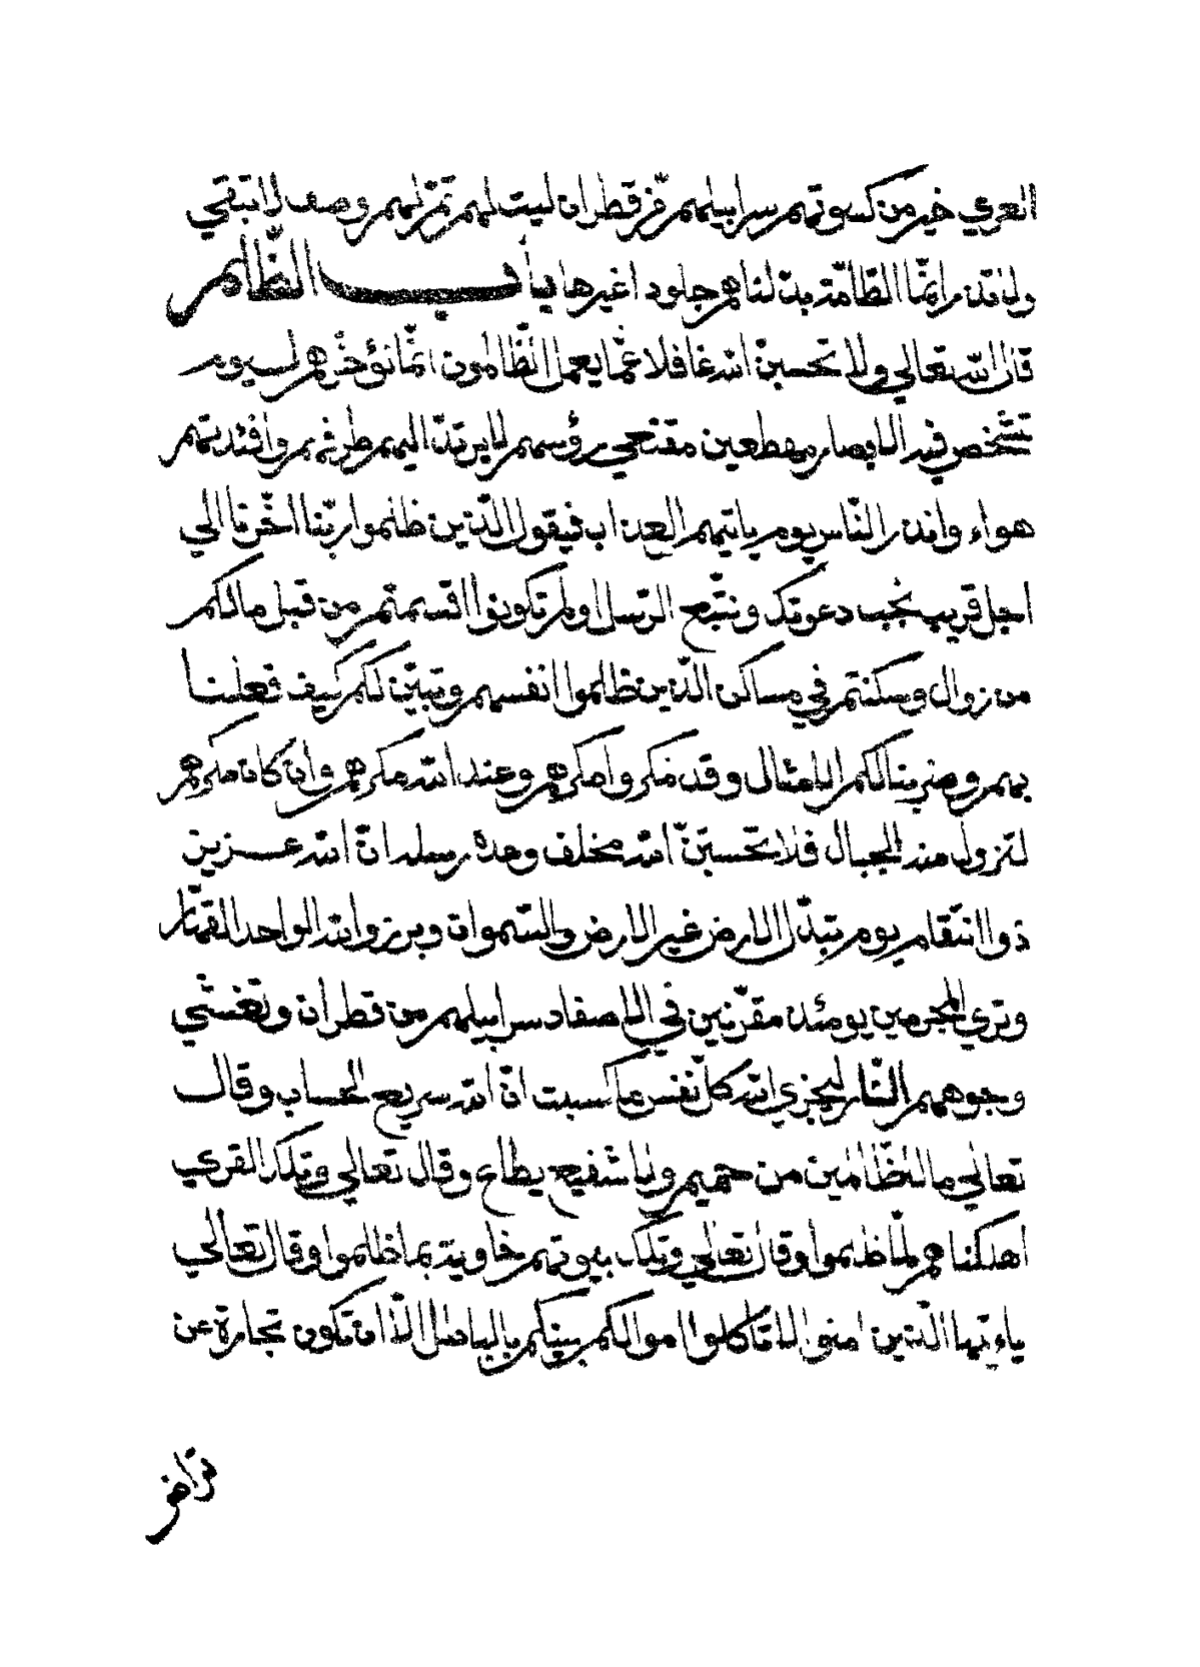 العري خير من كسوتهم سرابيلهم من قطران ليت لهم تمزلهم وصف لا تبقي
ولا تذر انما الطامة بدلناهم جلودا غيرها باب الظالم
قال الله تعالي ولا تحسبن الله غافلا عما يعمل الظالمون انما نؤخرهم ليوم
تشخص فيه الابصار مهطعين مقنعي رؤسهم لا يرتد اليهم طرفهم وافئدتهم
هواء وانذر الناس يوم ياتيهم العذاب فيقول الذين ظلموا ربنا اخرنا الي
اجل قريب نجب دعوتك ونتبع الرسل اولم تكونوا اقسمتم من قبل مالكم
من زوال وسكنتم في مساكن الذين ظلموا انفسهم وتبين لكم كيف فعلنا
بهم وضربنا لكم الامثال وقد مكروا مكرهم وعند الله مكرهم وان كان مكرهم
لتزول منه الجبال فلا تحسبن الله مخلف وعده رسله ان الله عزيز
ذو انتقام يوم تبدل الارض غير الارض والسموات وبرزوا لله الواحد القهار
وتري المجرمين يومئذ مقرنين في الاصفاد سرابيلهم من قطران وتغشي
وجوههم النار ليجزي الله كل نفس ما كسبت ان الله سريع الحساب وقال
تعالي ما للظالمين من حميم ولا شفيع يطاع وقال تعالي وتلك القري
اهلكناهم لما ظلموا وقال تعالي وتلك بيوتهم خاوية بما ظلموا وقال تعالي
ياءيها الذين امنوا لا تاكلوا اموالكم بينكم بالباطل الا ان تكون تجارة عن
تراض